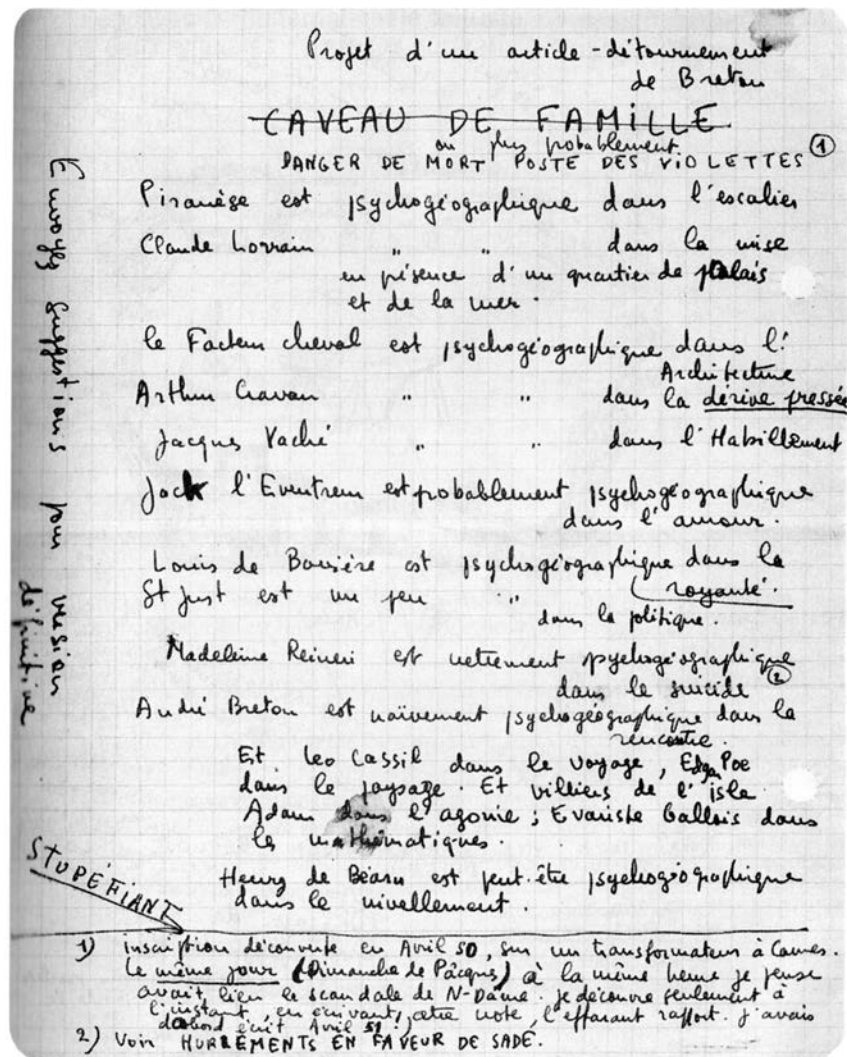 Projet d'un article-détournement
de Breton
CAVEAU DE FAMILLE
ou plus probablement
DANGER DE MORT POSTE DES VIOLETTES ①
Piranèse est psychogéographique dans l'escalier
Claude Lorrain " " dans la mise
en présence d'un quartier de palais
et de la mer.
le Facteur cheval est psychogéographique dans l'
Architecture
Arthur Cravan " " dans la dérive pressée
Jacques Vaché " " dans l'Habillement
Jack l'Eventreur est probablement psychogéographique
dans l'amour.
Louis de Bavière est psychogéographique dans la
royauté.
St Just est un peu "
dans la politique.
Madeleine Reineri est nettement psychogéographique
dans le suicide ②
André Breton est naïvement psychogéographique dans la
rencontre.
Et Leo Cassil dans le voyage, Edgar Poe
dans le paysage. Et villiers de l'isle
Adam dans l'agonie ; Evariste Gallois dans
les mathématiques.
Henry de Béarn est peut-être psychogéographique
dans le nivellement.
STUPÉFIANT
1) inscription découverte en Avril 50, sur un transformateur à Cannes.
Le même jour (Dimanche de Pâques) à la même heure je pense
avait lieu le scandale de N-Dame. je découvre seulement à
l'instant, en écrivant cette note, l'effarant rapport. j'avais
d'abord écrit Avril 51 !)
2) Voir HURLEMENTS EN FAVEUR DE SADE.
Envoyez suggestions pour version
définitive